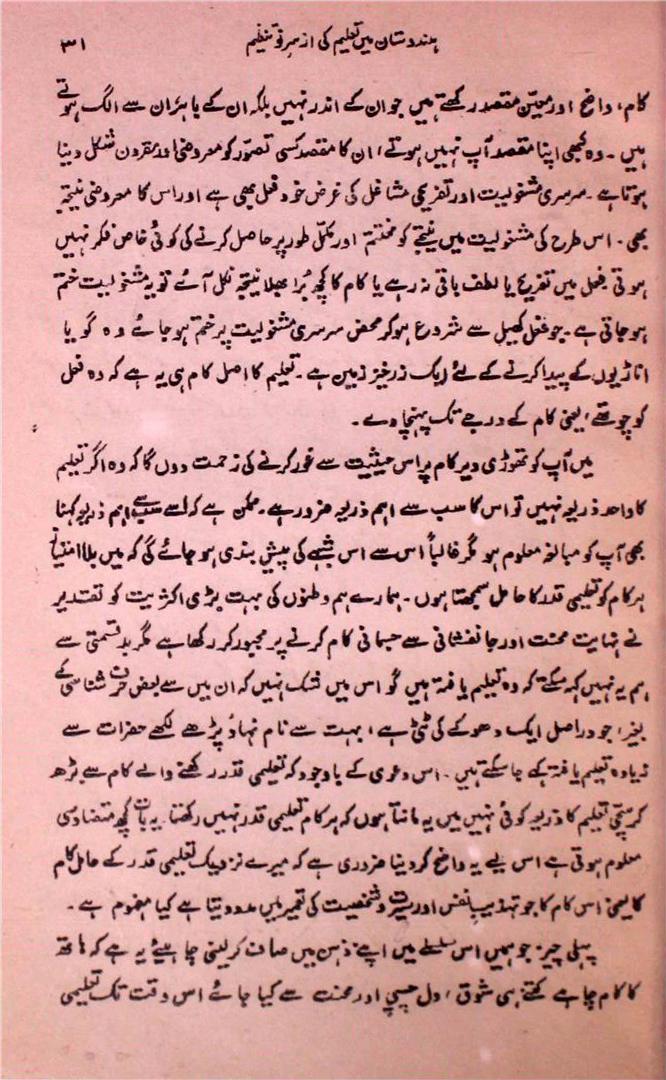 ہندوستان میں تعلیم کی از سرِ نو تنظیم ۳۱
کام، واضح اور معیّن مقصد رکھتے ہیں جو ان کے اندر نہیں بلکہ ان کے باہر ان سے الگ ہوتے
ہیں۔ وہ کبھی اپنا مقصد آپ نہیں ہوتے، ان کا مقصد کسی تصوّر کو معروضی اور مقرون شکل دینا
ہوتا ہے۔ سرسری مشغولیت اور تفریحی مشاغل کی غرض خود فعل بھی ہے اور اس کا معروضی نتیجہ
بھی۔ اس طرح کی مشغولیت میں نتیجے کو مختتم اور مکمّل طور پر حاصل کرنے کی کوئی خاص فکر نہیں
ہوتی فعل میں تفریح یا لطف باقی نہ رہے یا کام کا کچھ بُرا بھلا نتیجہ نکل آئے تو یہ مشغولیت ختم
ہو جاتی ہے۔ جو فعل کھیل سے شروع ہو کر محض سرسری مشغولیت پر ختم ہو جائے وہ گویا
اناڑیوں کے پیدا کرنے کے لئے ایک زرخیز زمین ہے۔ تعلیم کا اصل کام ہی یہ ہے کہ وہ فعل
کو چوتھے، یعنی کام کے درجے تک پہنچا دے۔
میں آپ کو تھوڑی دیر کام پر اس حیثیت سے غور کرنے کی زحمت دوں گا کہ وہ اگر تعلیم
کا واحد ذریعہ نہیں تو اس کا سب سے اہم ذریعہ ضرور ہے۔ ممکن ہے کہ اسے سب سے اہم ذریعہ کہنا
بھی آپ کو مبالغہ معلوم ہو مگر غالباً اس سے اس شبہے کی پیش بندی ہو جائے گی کہ میں بلا امتیاز
ہر کام کو تعلیمی قدر کا حامل سمجھتا ہوں۔ ہمارے ہم وطنوں کی بہت بڑی اکثریت کو تقدیر
نے نہایت محنت اور جانفشانی سے جسمانی کام کرنے پر مجبور کر رکھا ہے مگر بدقسمتی سے
ہم یہ نہیں کہہ سکتے کہ وہ تعلیم یافتہ ہیں گو اس میں شک نہیں کہ ان میں سے بعض حرف شناسی کے
بغیر، جو دراصل ایک دھوکے کی ٹٹی ہے، بہت سے نام نہاد پڑھے لکھے حضرات سے
زیادہ تعلیم یافتہ کہے جا سکتے ہیں۔ اس دعوی کے باوجود کہ تعلیمی قدر رکھنے والے کام سے بڑھ
کر سچّی تعلیم کا ذریعہ کوئی نہیں میں یہ مانتا ہوں کہ ہر کام تعلیمی قدر نہیں رکھتا۔ یہ بات کچھ متضاد سی
معلوم ہوتی ہے اس لیے یہ واضح کر دینا ضروری ہے کہ میرے نزدیک تعلیمی قدر کے حامل کام
کا یعنی اس کام کا جو تہذیبِ نفس اور سیرت و شخصیت کی تعمیر میں مدد دیتا ہے کیا مفہوم ہے۔
پہلی چیز جو ہمیں اس سلسلے میں اپنے ذہن میں صاف کر لینی چاہیئے یہ ہے کہ ہاتھ
کا کام چاہے کتنے ہی شوق، دل چسپی اور محنت سے کیا جائے اس وقت تک تعلیمی